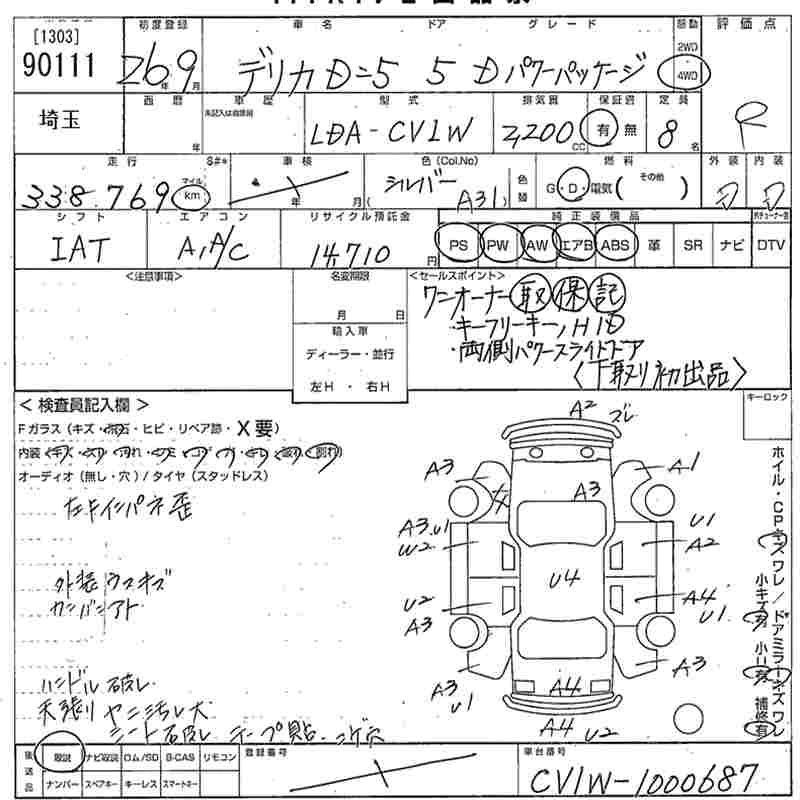 [1303]
90111
初度登録 車名 ドア グレード 駆動 評価点
26年9月 デリカD=5 5 D パワーパッケージ 2WD 4WD
埼玉
西暦 車歴 型式 排気量 保証書 定員
年 未記入は自家用 LDA-CV1W 2,200CC 有 無 8名 R
走行 8#* 車検 色(Col.No) 燃料 外装 内装
338,769 マイル km 年 月 ( シルバー A31 ) 色替 G・D・電気( その他 ) D D
シフト エアコン リサイクル預託金 純正装備品
IAT A,A/C 14,710円 PS PW AW エアB ABS 革 SR ナビ DTV
<注意事項> 名変期限 <セールスポイント>
月 日 ワンオーナー 取 保 記
輸入車 キーフリーキー, HID
ディーラー・並行 ・両側パワースライドドア
左H ・ 右H <下取り初出品>
<検査員記入欄> キーロック
Fガラス(キズ・飛石・ヒビ・リペア跡・X要)
オーディオ(無し・穴)/タイヤ(スタッドレス)
左キインパネ歪
外装ウスキズ
カンバンアト
ハンドル破レ
天張りヤニ汚レ大
シート破レ テープ貼 コゲ穴
A2 ズレ
A3 A1
A3
A3 U1 U1
W2 A2
U4
U2 A4
A3 U1
A3 A3
U1 A4
A4 U2
ホイル・CPキズ ワレ/ドアミラーキズ ワレ
小キズ有 小凹有 補修有
後送品 取説 ナビ取説 ロム/SD B-CAS リモコン 登録番号 車台番号
ナンバー スペアキー キーレス スマートキー CV1W-1000687